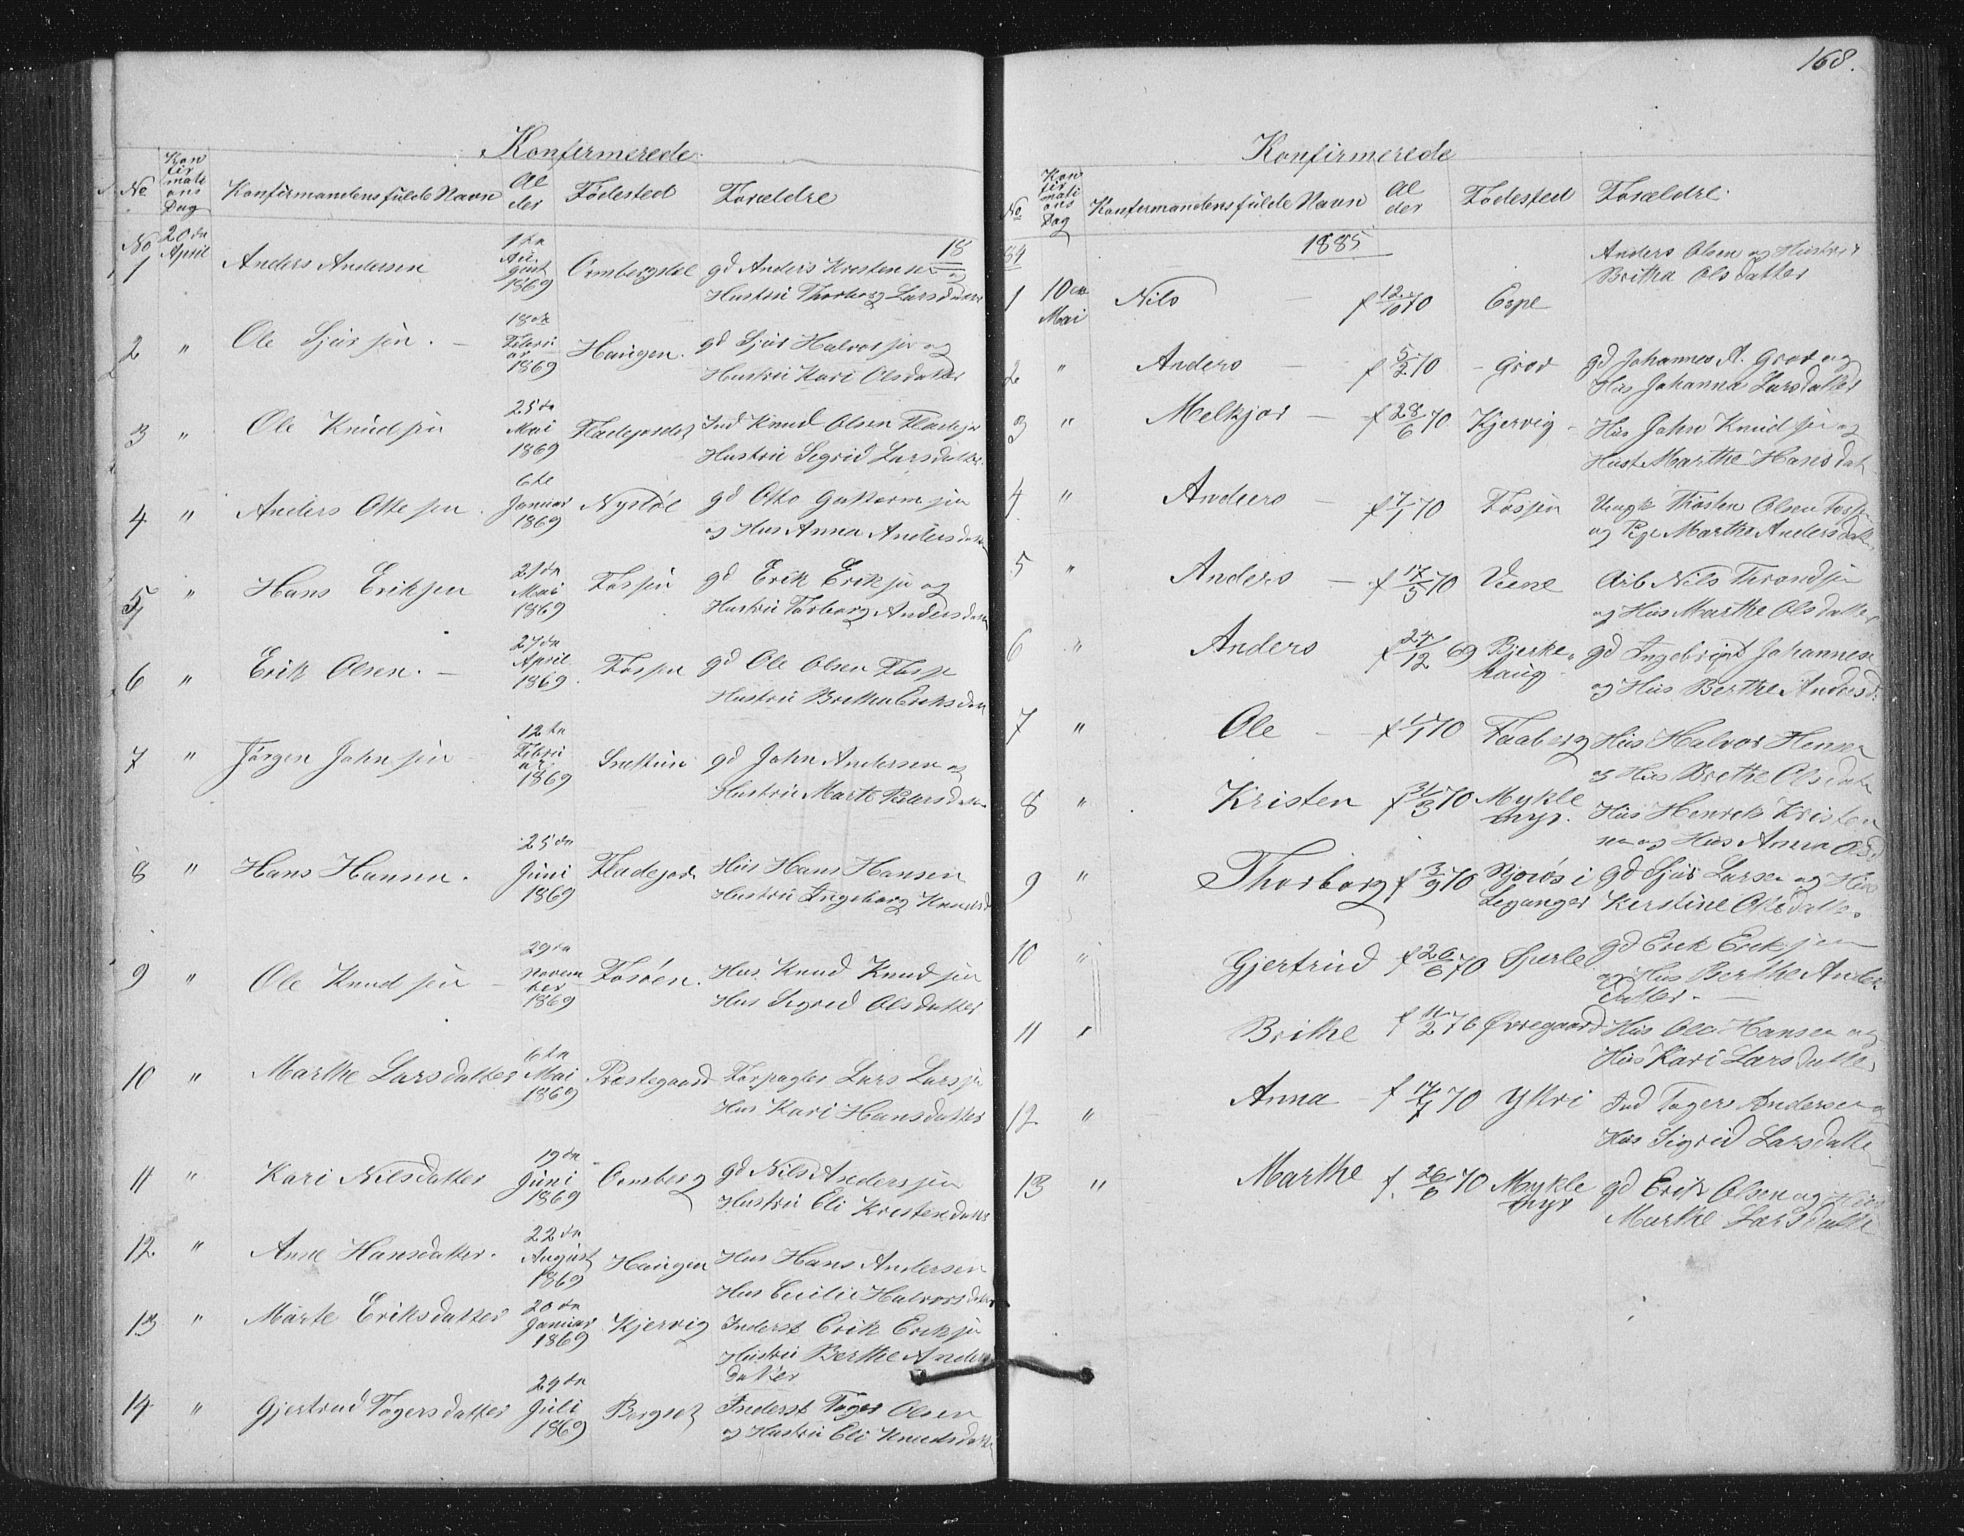 Konfirmerede
No Kon fir mati ons Dag Konfirmandens fulde Navn Al der Fødested Forældre
No 20de April 18
1 Anders Andersen 1ste August 1869 Ormbergstøl gd Anders Kristensen og
Hustru Thorborg Larsdatter
2 " Ole Sjursen. 18de Februar 1869 Haugen. gd Sjur Halvorsen og
Hustru Kari Olsdatter
3 " Ole Knudsen 25de Mai 1869 Ind Knud Olsen
Hustru Sigrid Larsdatter
4 " Anders Ottesen. 6te Januar 1869 Nystøl gd Otto Guttormsen
og Hus Anna Andersdatter
5 " Hans Eriksen 27de Mai 1869 Fossen gd Erik Eriksen og
Hustru Torborg Andersdatter
6 " Erik Olsen. 27de April 1869. Fossen gd Ole Olsen
Hustru Brithe Eriksdatter
7 " Jørgen Johnsen 12te Februar 1869 Snetun gd John Andersen og
Hustru Marte Pedersdatter
8 " Hans Hansen. 25de Juni 1869 Hus Hans Hansen
Hustru Ingeborg Knudsd
9 " Ole Knudsen 29de November 1869 Fosøen. Hus Knud Knudsen
Hus Sigrid Olsdatter
10 " Marthe Larsdatter 6te Mai 1869 Præstegaard Forpagter Lars Larsen
Hus Kari Hansdatter
11 " Kari Nilsdatter 19de Juni 1869 Ormberg gd Nils Andersen
Hustru Eli Kristensdatter
12 " Ane Hansdatter. 22de August 1869 Haugen Hus Hans Andersen
Hus Cecilie Halvorsdatter
13 " Marte Eriksdatter 20de Januar 1869 Kjervig Inderst Erik Eriksen
Hustru Berthe Anders
datter
14 " Gjertrud Tøgersdatter 29de Juli 1869 Bergset Inderst Tøger Olsen
og Hustru Eli Knudsdatter
168.
Konfirmerede
No Kon fir mati ons Dag Konfirmandens fulde Navn Al der Fødested Forældre.
1885 Anders Olsen og Hustru
Britha Olsdatter
1 10de Mai Nils f 12/10 70 Espe
2 " Anders f 5/2 70 Grov gd Johannes A. Grov og
Hus Johanna Larsdatter
3 " Melkjor f 28/6 70 Kjervig Hus John Knudsen og
Hust Marthe Hansdat
4 " Anders f 7/1 70 Fossen Ungk Thosten Olsen
og Pige Marthe Andersdat
5 " Anders f 17/5 70 Arb Nils Throndsen
og Hus Marthe Olsdatter
6 " Anders f 24/12 69 Bjerke haug gd Ingebrigt Johannesen
og Hus Berthe Andersd.
7 " Ole f 1/1 70 Faaberg Hus Halvor Hensen
og Hus Brethe Olsdat
8 " Kristen f 31/3 70 Mykle myr. Hus Henrik Kristen
sen og Hus Anna Olsd
9 " Thorborg f 3/9 70 Njøs i Leganger gd Sjur Larsen og Hus
Kerstine Olsdatter.
10 " Gjertrud f 26/6 70 Sperle gd Erik Eriksen
og Hus Berthe Anders
datter.
11 " Brithe f 11/2 70 Øvregaard Hus Ole Hansen og
Hus Kari Larsdatter
12 " Anna f 17/7 70 Ytri Ind Tøger Andersen og
Hus Sigrid Larsdatte
13 " Marthe f. 26/6 70 Mykle myr gd Erik Olsen og Hus
Marthe Larsdatte